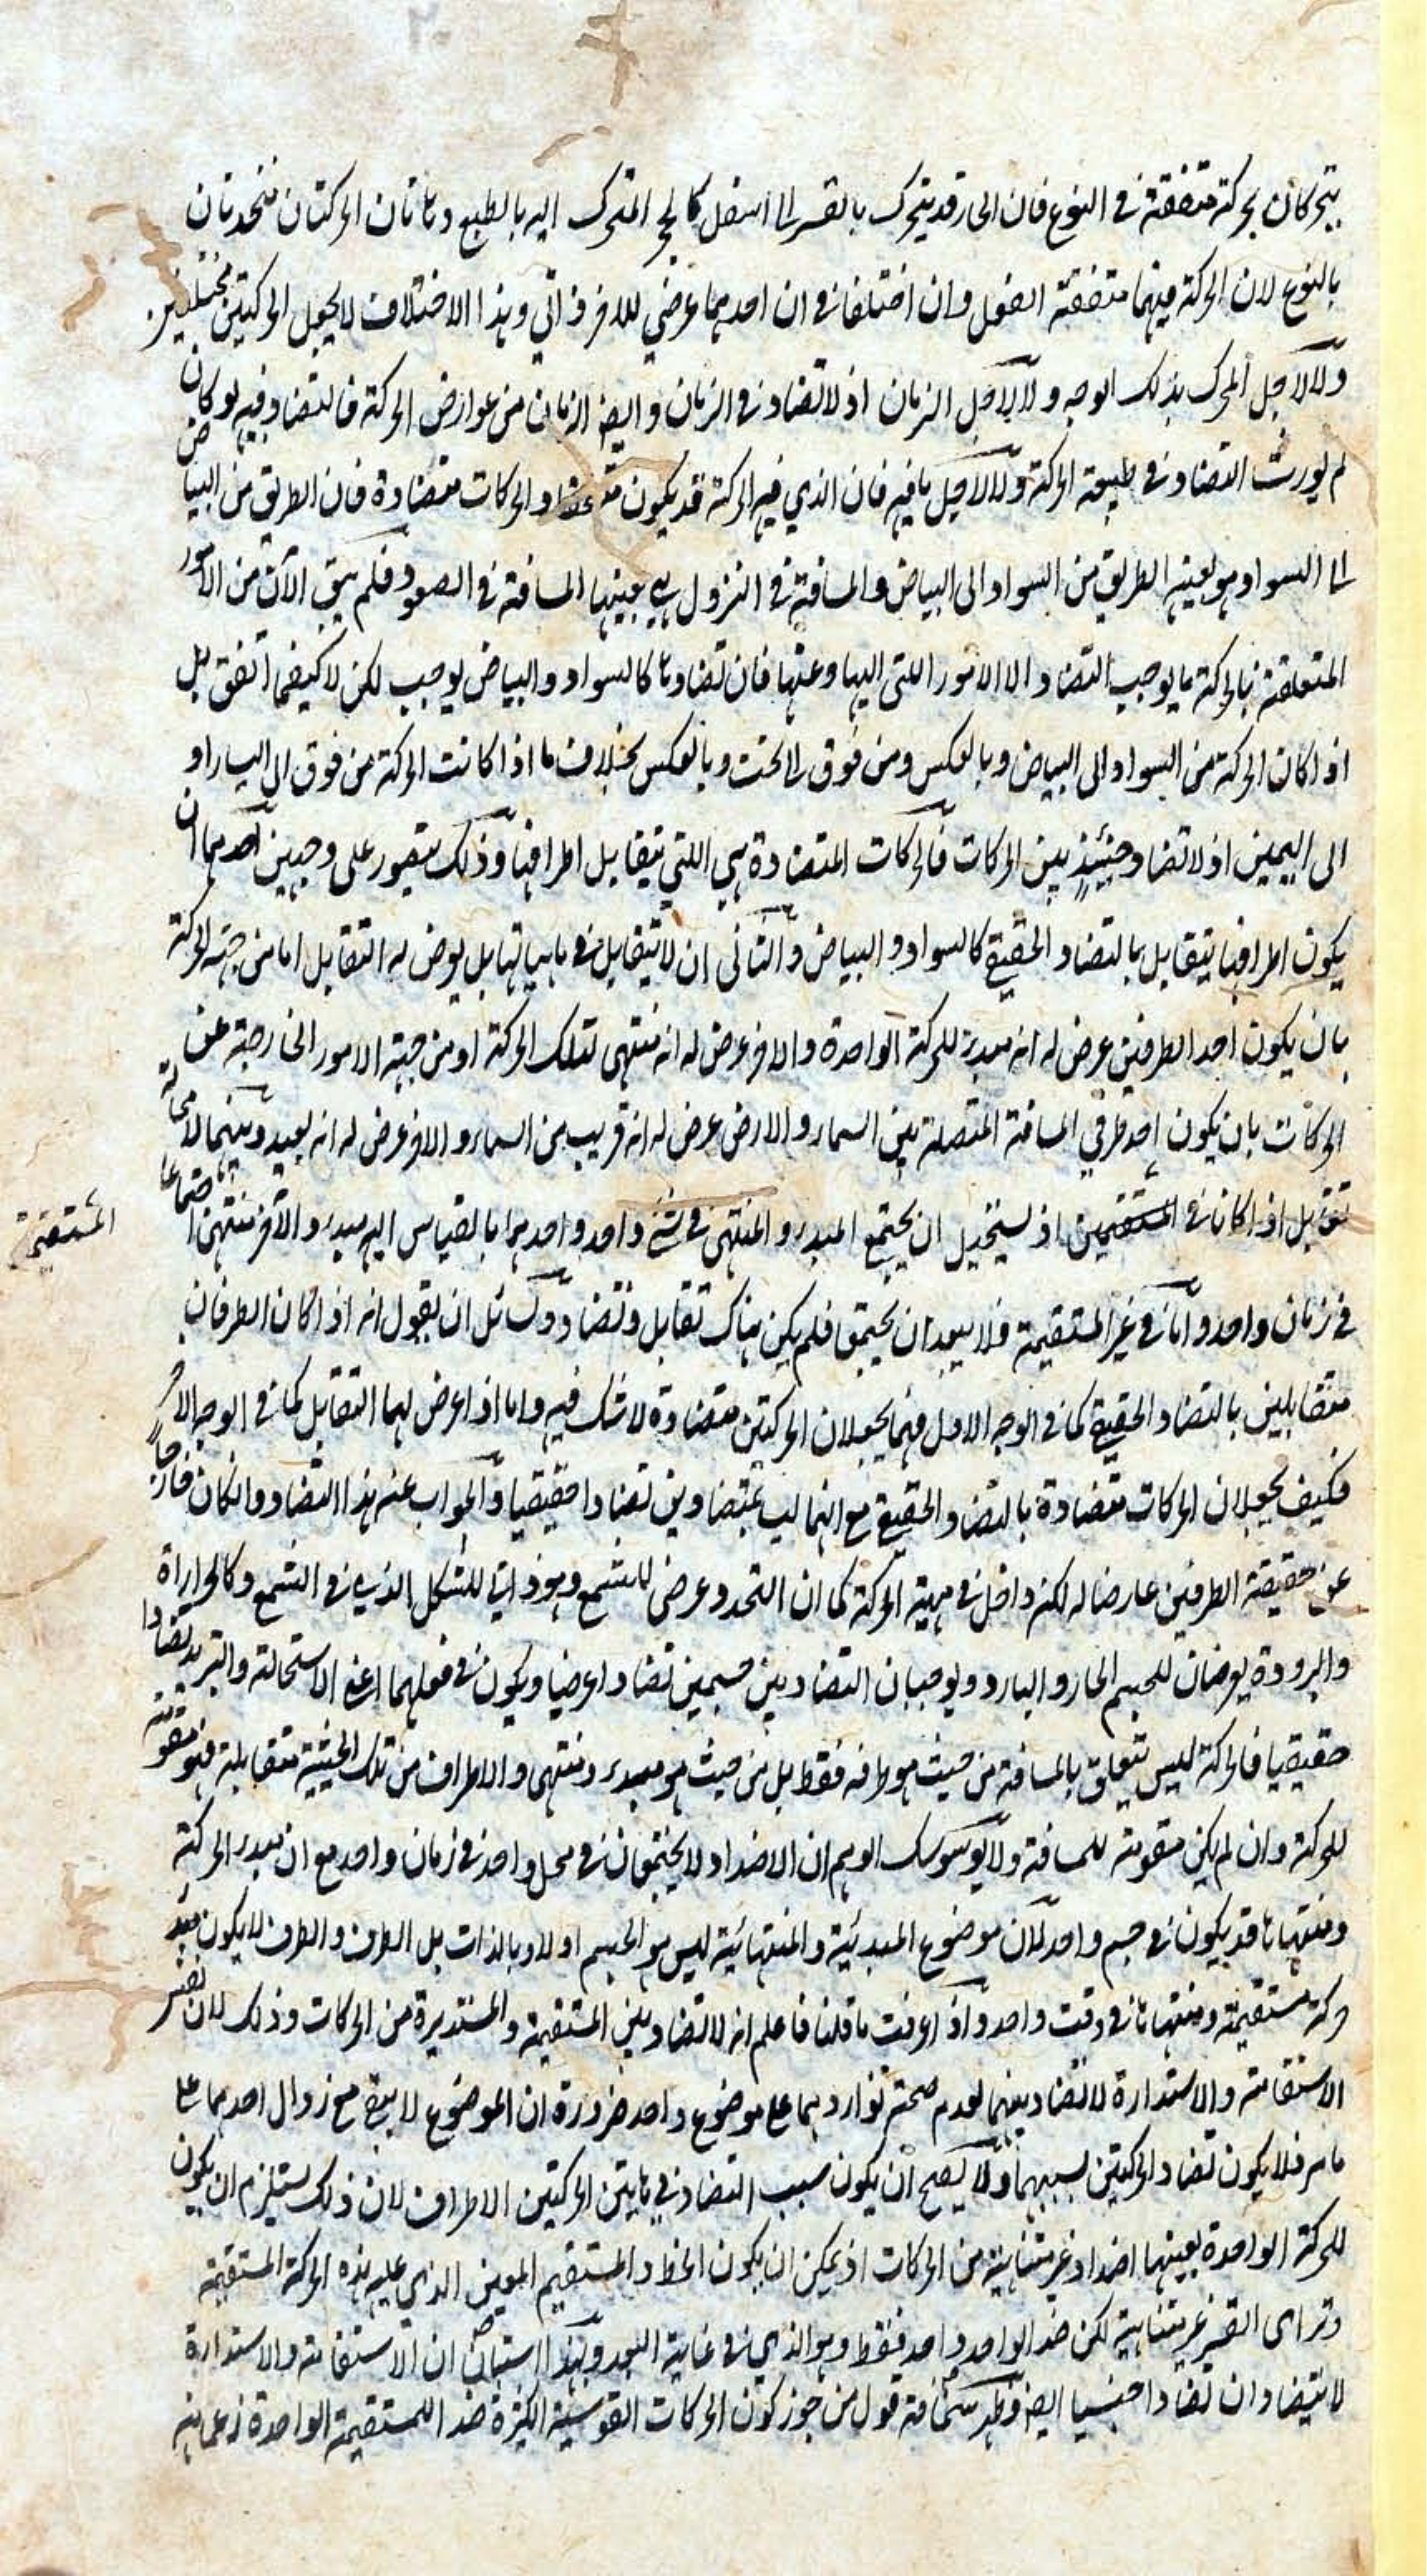 يتحركان بحركة متفقة في النوع فان الحار قد يتحرك بالقسر الى اسفل كالحجر المتحرك اليه بالطبع وهاتان الحركتان متحدتان
بالنوع لان الحركة فيهما متفقة الفعل وان اختلفا في ان احدهما عرضي للاخر ذاتي وهذا الاختلاف لا يجعل الحركتين مختلفتين
ولا لاجل المحرك بذلك الوجه ولا لاجل الزمان اذ لا تضاد في الزمان وايضا الزمان من عوارض الحركة فالتضاد فيه لو كان
لم يورث التضاد في طبيعة الحركة ولا لاجل ما فيه فان الذي فيه الحركة قد يكون متحدا والحركات متضادة فان الطريق من البياض
الى السواد هو بعينه الطريق من السواد الى البياض والمسافة في النزول هي بعينها المسافة في الصعود فلم يبق الآن من الامور
المتعلقة بالحركة ما يوجب التضاد الا الامور اللتي اليها وعنها فان تضادها كالسواد والبياض يوجب لكن لا كيفما اتفق بل
اذا كان الحركة من السواد الى البياض وبالعكس ومن فوق الى تحت وبالعكس بخلاف ما اذا كانت الحركة من فوق الى اليسار او
الى اليمين اذ لا تضاد حينئذ بين الحركات فالحركات المتضادة هي اللتي يتقابل اطرافها وذلك يتصور على وجهين احدهما ان
يكون اطرافها يتقابل بالتضاد الحقيقي كالسواد والبياض والثاني ان لا يتقابل في ماهياتها بل يعرض له التقابل اما من جهة الحركة
بان يكون احد الطرفين عرض له انه مبدء للحركة الواحدة والاخر عرض له انه منتهى لتلك الحركة او من جهة الامور الخارجة عن
الحركات بان يكون احد طرفي المسافة المتصلة بين السماء والارض عرض له انه قريب من السماء والاخر عرض له انه بعيد وبينهما لا محالة
تقابل اذا كانا في المستقيمين اذ يستحيل ان يجتمع المبدء والمنتهى في شيء واحد واحد هما بالقياس اليه مبدء والآخر منتهى اجتماعا
المستقيمة
في زمان واحد واما في غير المستقيمة فلا يبعد ان يجتمع فلم يكن هناك تقابل وتضاد ولسائل ان يقول انه اذا كان الطرفان
متقابلين بالتضاد الحقيقي كما في الوجه الاول فهما يجعلان الحركتين متضادة لا شك فيه واما اذا عرض لهما التقابل كما في الوجه الآخر
فكيف يجعلان الحركات متضادة بالتضاد الحقيقي مع انهما ليسا بمتضادين تضادا حقيقيا والجواب عنه هذا التضاد وان كان خارجا
عن حقيقة الطرفين عارضا له لكنه داخل في مهية الحركة كما ان التحدد عرضي للشمع وهو ذاتي للشكل الذي في الشمع وكالحرارة
والبرودة يعرضان للجسم الحار والبارد ويوجبان التضاد بين جسمين تضادا عرضيا ويكون في فعلهما اعني الاستحالة والتبريد تضادا
حقيقيا فالحركة ليس يتعلق بالمسافة من حيث هو طرفه فقط بل من حيث هو مبدء ومنتهى والاطراف من تلك الحيثية متقابلة فهو مقومة
للحركة وان لم يكن مقومة للمسافة ولا يوسوسك الوهم ان الاضداد لا يجتمعان في محل واحد في زمان واحد مع ان مبدء الحركة
ومنتهاها قد يكون في جسم واحد لان موضوع المبدئية والمنتهائية ليس هو الجسم اولا وبالذات بل الطرف والطرف لا يكون مبدء
حركة مستقيمة ومنتهاها في وقت واحد واذ عرفت ما قلنا فاعلم انه لا تضاد بين المستقيمة والمستديرة من الحركات وذلك لان نفس
الاستقامة والاستدارة لا تضاد بينهما لعدم صحة تواردهما على موضوع واحد ضرورة ان الموضوع لا يبقى مع زوال احدهما على
ما مر فلا يكون تضاد الحركتين بسببهما ولا يصح ان يكون سبب التضاد في هاتين الحركتين الاطراف لان ذلك يستلزم ان يكون
للحركة الواحدة بعينها اضداد غير متناهية من الحركات اذ يمكن ان يكون الخط والمستقيم المعين الذي عليه هذه الحركة المستقيمة
وترا القسي غير متناهية لكن ضد الواحد واحد فقط وهو الذي في غاية البعد وبهذا استبان ان الاستقامة والاستدارة
لا يتضادان تضادا جنسيا ايضا وظهر سخافة قول من جوز كون الحركات القوسية الكثيرة ضدا للمستقيمة الواحدة زعما منه